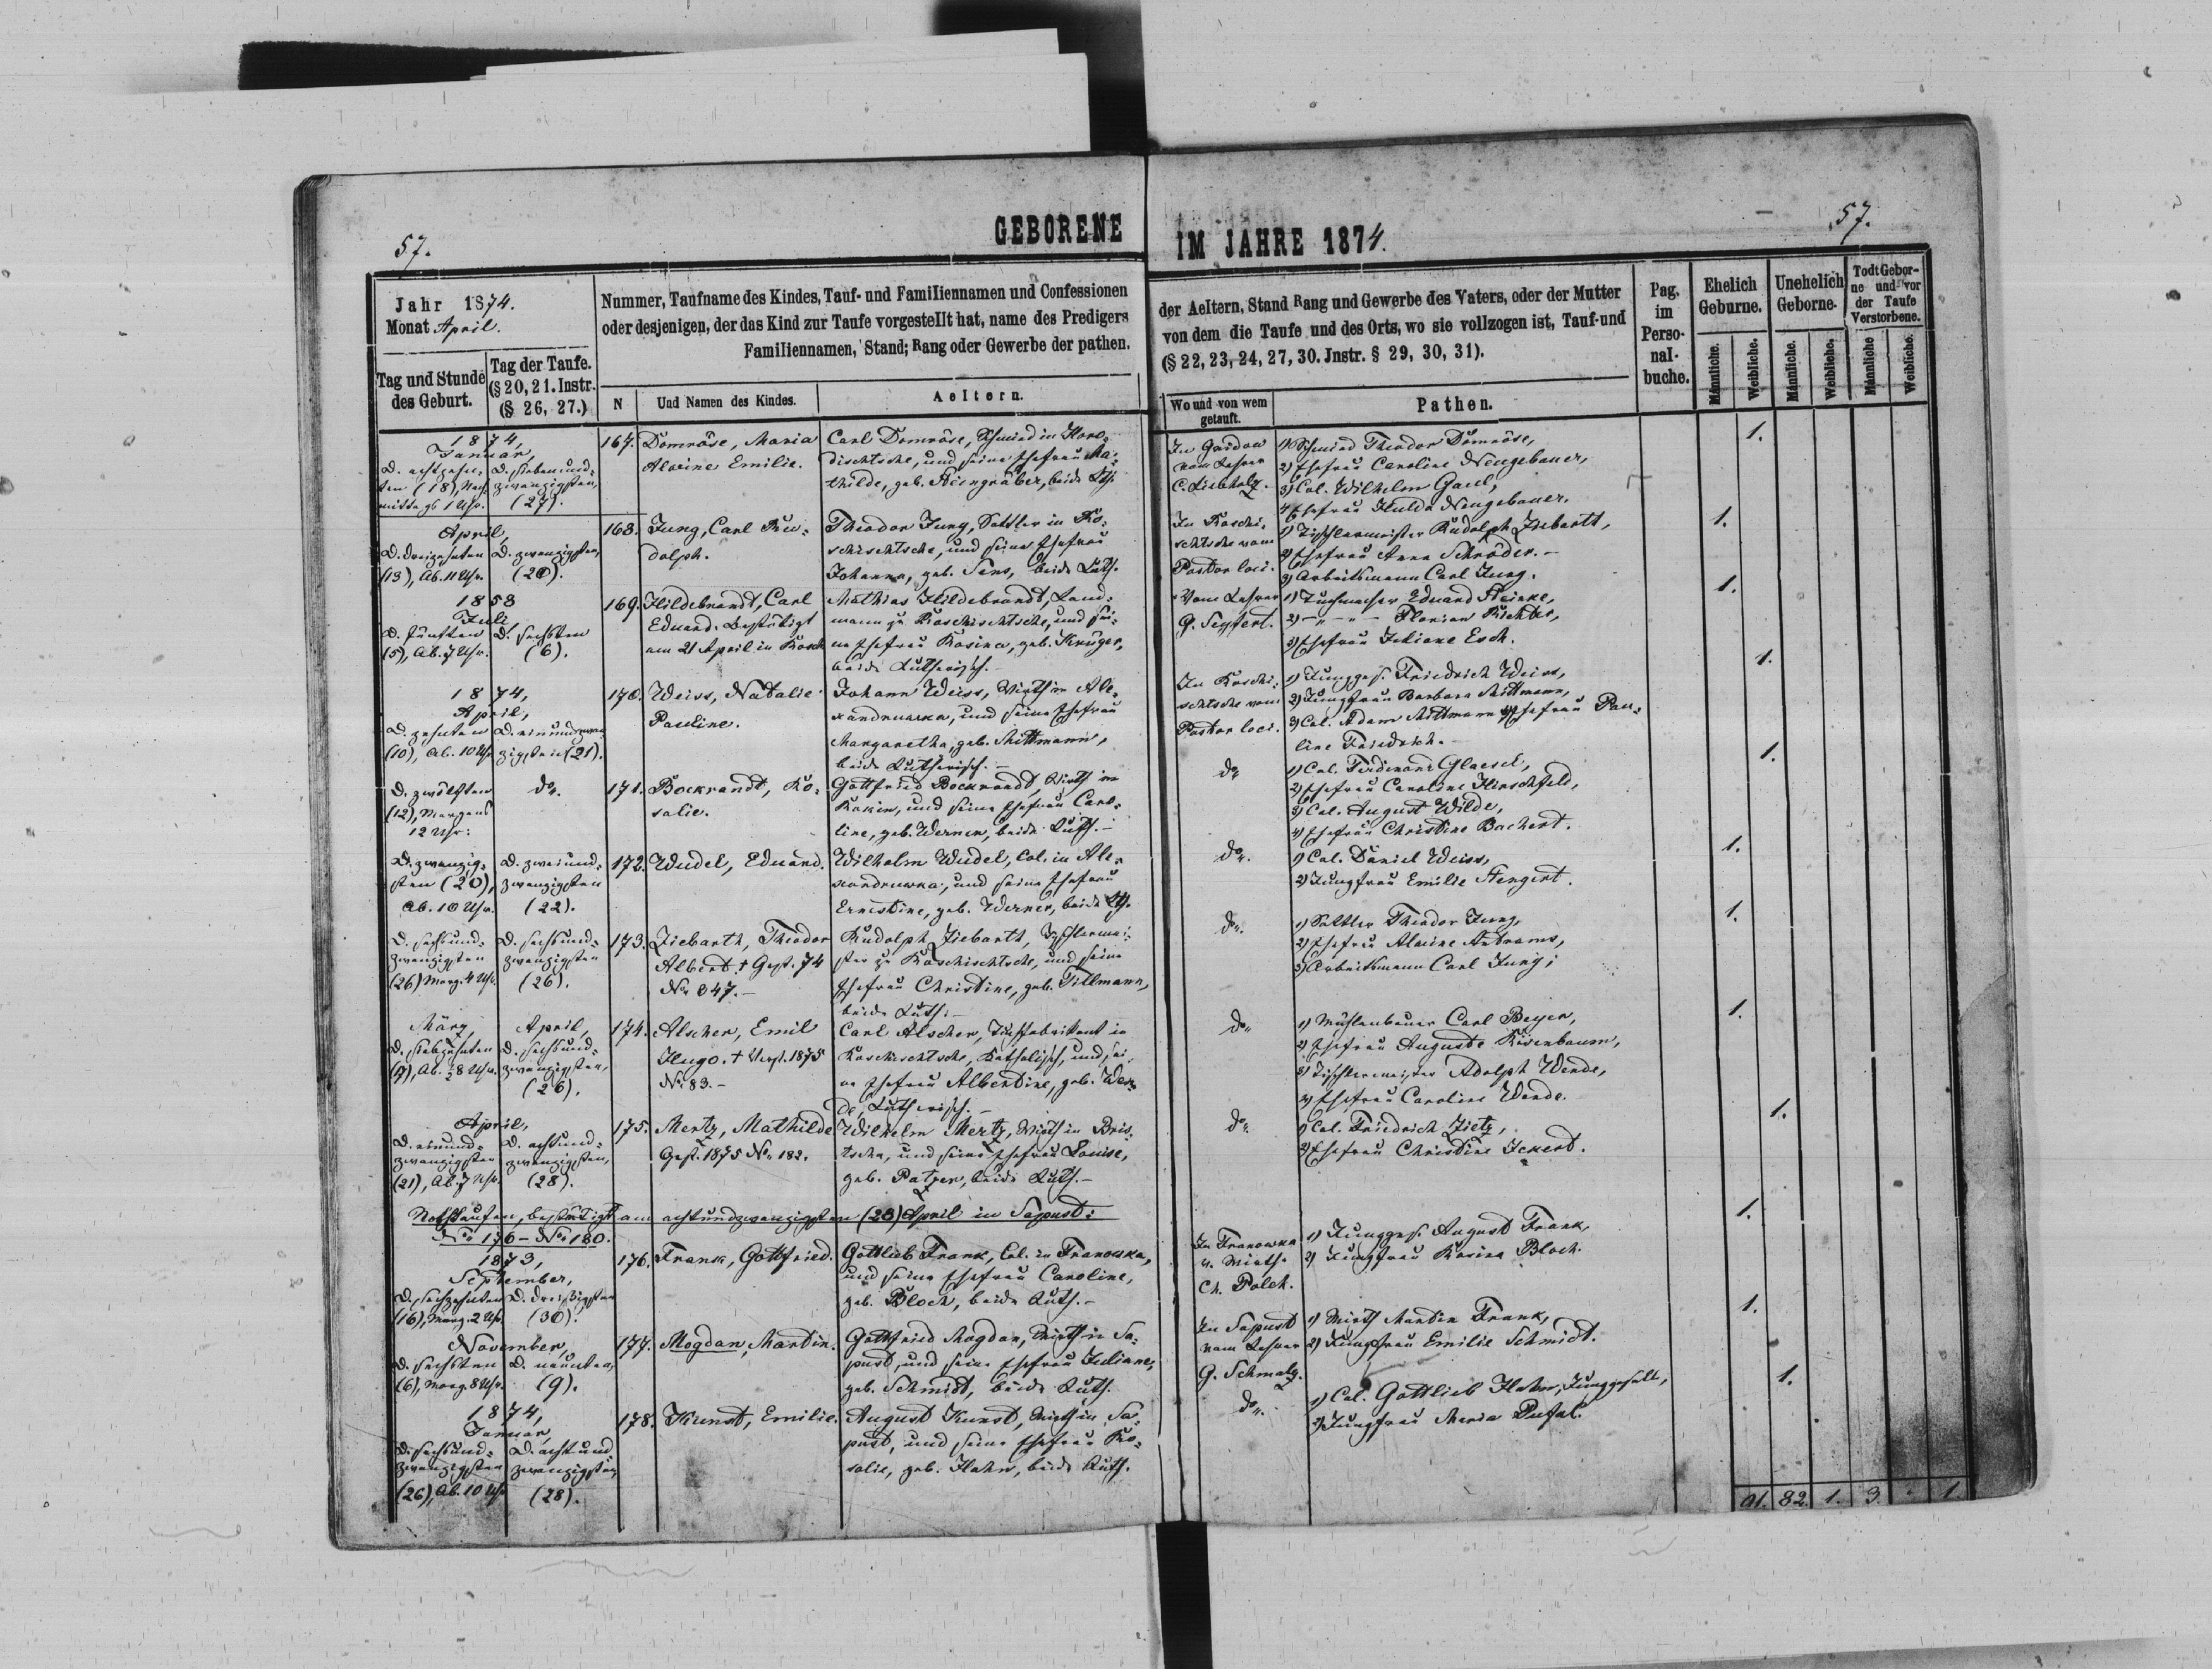 57.
GEBORENE
Jahr 1874.
Monat April.
Nummer, Taufname des Kindes, Tauf- und Familiennamen und Confessionen
oder desjenigen, der das Kind zur Taufe vorgestellt hat, name des Predigers
Familiennamen, Stand; Rang oder Gewerbe der pathen.
Tag und Stunde
des Geburt.
Tag der Taufe.
(§ 20, 21. Instr.
(§ 26, 27.)
N
Und Namen des Kindes.
Aeltern.
1874,
Januar,
D. achtzehn-
ten (18), Nach-
mittags 1 Uhr.
D. siebenund-
zwanzigsten,
(27).
167.
Domröse, Maria
Alwine Emilie.
Carl Domröse, Schmied in Horo-
dischtsche, und seine Ehefrau Ma-
thilde, geb. Steingräber, beide Lth.
April,
D. dreizehnten
(13), Ab. 11 Uhr.
D. zwanzigsten,
(20).
168.
Jung, Carl Ru-
dolph.
Theodor Jung, Sattler in Ro-
schischtsche, und seine Ehefrau
Johanna, geb. Sens, beide Luth.
1858
Juli,
D. fünften
(5), Ab. 7 Uhr.
D. sechsten
(6).
169.
Hildebrandt, Carl
Eduard. Bestätigt
am 21 April in Rosch
Mathias Hildebrandt, Land-
mann zu Roschischtsche, und sei-
ne Ehefrau Rosina, geb. Krüger,
beide Lutherisch.
1874,
April,
D. zehnten
(10), Ab. 10 Uhr
D. einundzwan-
zigsten (21).
170.
Weiss, Natalie
Pauline.
Johann Weiss, Wirth in Ale-
xandruwka, und seine Ehefrau
Margaretha, geb. Mittmann,
beide Lutherisch. -
D. zwölften
(12), Morgens
12 Uhr.
do.
171.
Bockrandt, Ro-
salie.
Gottfried Bockrandt, Wirth in
Rokin, und seine Ehefrau Caro-
line, geb. Werner, beide Luth. -
D. zwanzig-
sten (20),
Ab. 10 Uhr.
D. zweiund-
zwanzigsten
(22).
172.
Wudel, Eduard.
Wilhelm Wudel, Col. in Ale-
xandruwka, und seine Ehefrau
Ernestine, geb. Werner, beide Lth.
D. sechsund-
zwanzigsten
(26) Morg. 4 Uhr.
D. sechsund-
zwanzigsten
(26).
173.
Ziebarth, Theodor
Albert. † Gest. 74
No 347. -
Rudolph Ziebarth, Tischlermei-
ster zu Roschischtsche, und seine
Ehefrau Christine, geb. Tillmann,
beide Luth. -
März,
D. siebzehnten
April,
D. sechsund-
zwanzigsten,
(26).
174.
Alscher, Emil
Hugo. † 1875
No 83. -
Carl Alscher, Tuchfabrikant in
Roschischtsche, Katholisch, und sei-
ne Ehefrau Albertine, geb. Wen-
de, Lutherisch. -
April,
D. einund-
zwanzigsten
(21), Ab. 7 Uhr.
D. achtund-
zwanzigsten,
(28).
175.
Mertz, Mathilde
Gest. 1875 No. 182.
Wilhelm Mertz, Wirth in Bris-
tscha, und seine Ehefrau Louise,
geb. Patzer, beide Luth. -
Nothtaufen, bestätigt am achtundzwanzigsten (28) April in Sapust:
No 176 - No 180.
1873,
September,
D. sechzehnten
(16), Morg. 2 Uhr.
D. dreißigsten
(30).
176.
Frank, Gottfried.
Gottlieb Frank, Col. in Franowka,
und seine Ehefrau Caroline,
geb. Bloch, beide Luth. -
November,
D. sechsten
(6), Morg. 8 Uhr.
D. neunten,
(9).
177.
Mogdan, Martin.
Gottfried Mogdan, Wirth in Sa-
pust, und seine Ehefrau Juliane,
geb. Schmidt, beide Luth.
1874,
Januar,
D. sechsund-
zwanzigsten
(26), Ab. 10 Uhr
D. achtund
zwanzigsten
(28).
178.
Kunst, Emilie.
August Kunst, Wirth in Sa-
pust, und seine Ehefrau Ro-
salie, geb. Hahn, beide Luth.
57.
IM JAHRE 1874.
der Aeltern, Stand Rang und Gewerbe des Vaters, oder der Mutter
von dem die Taufe und des Orts, wo sie vollzogen ist, Tauf-und
(§ 22, 23, 24, 27, 30. Jnstr. § 29, 30, 31).
Wo und von wem
getauft.
Pathen.
Pag.
im
Perso-
nal-
buche.
Ehelich
Geburne.
Unehelich
Geborne.
Todt Gebor-
ne und vor
der Taufe
Verstorbene.
Männliche.
Weibliche.
Männliche.
Weibliche.
Männliche
Weibliche.
vom Lehrer
C. Liebholz.
1) Schmied Theodor Domröse,
2) Ehefrau Caroline Neugebauer,
3) Col. Wilhelm Gaul,
4) Ehefrau Hulda Neugebauer.
1.
In Roschi-
schtsche vom
Pastor loci.
1) Tischlermeister Rudolph Ziebarth,
2) Ehefrau Anna Schröder. -
3) Arbeitsmann Carl Jung.
1.
Vom Lehrer
G. Seyfert.
1) Tuchmacher Eduard Steinke,
2) - " - " - Florian Richter,
3) Ehefrau Juliane Esch.
1.
In Roschi-
schtsche vom
Pastor loci.
1) Junggs. Friedrich Weiss,
2) Jungfrau Barbara Mittmann,
3) Col. Adam Mittmann 4) Ehefrau Pau-
line Friedrich. -
1.
do
1) Col. Ferdinand Glaesel,
2) Ehefrau Caroline Hirschfeld,
3) Col. August Wilde,
4) Ehefrau Christine Bachert.
1.
do.
1) Col. Daniel Weiss,
2) Jungfrau Emilie Stengert.
1.
do.
1) Sattler Theodor Jung,
2) Ehefrau Alwine Antrams,
3) Arbeitsmann Carl Jung;
1.
do
1) Mühlenbauer Carl Beyer,
2) Ehefrau Auguste Kirenbaum,
3) Tischlermeister Adolph Wende,
4) Ehefrau Caroline Wende.
1.
do
1) Col. Friedrich Zietz,
2) Ehefrau Christine Ickert.
1.
In Franowka
v. Wirth
Ch. Polch.
1) Junggs. August Frank,
2) Jungfrau Rosina Bloch.
1.
In Sapust
vom Lehrer
G. Schmalz.
1) Wirth Martin Frank,
2) Jungfrau Emilie Schmidt.
1.
do.
1) Col. Gottlieb Hahn, Junggesell,
2) Jungfrau Maria Pufal.
1.
91. 82. 1. 3. - 1.